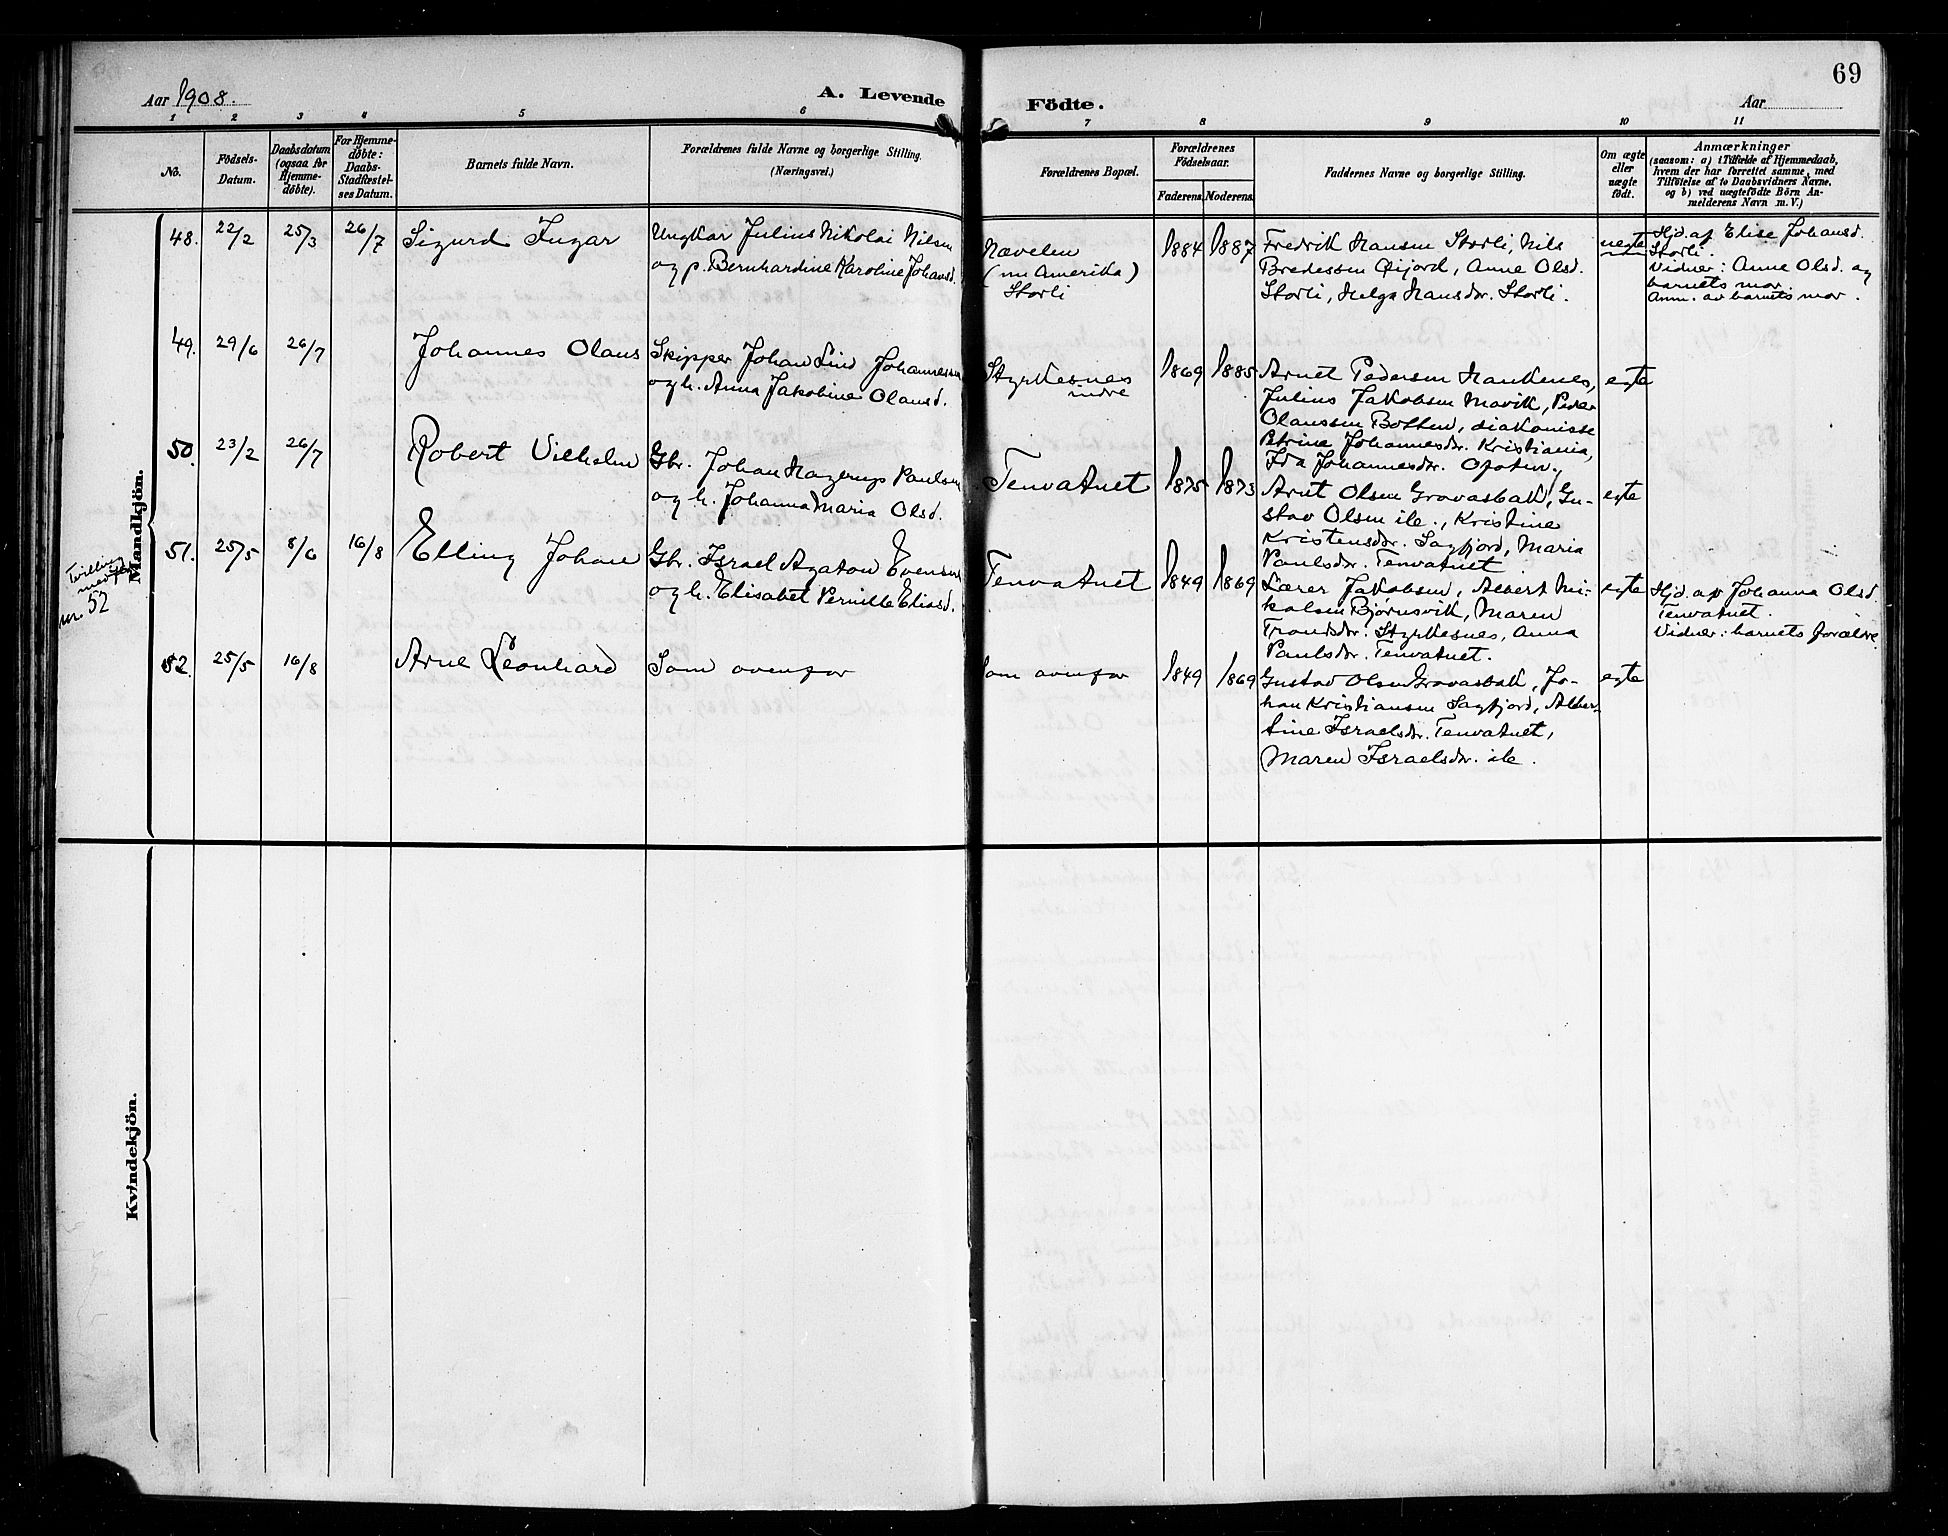 69
Aar 1908.
A. Levende Födte.
Aar
1 2 3 4 5 6 7 8 9 10 11
No.
Födsels-
Datum.
Daabsdatum
(ogsaa for
Hjemme-
döbte).
For Hjemme-
döbte:
Daabs-
Stadfæstel-
ses Datum.
Barnets fulde Navn.
Forældrenes fulde Navne og borgerlige Stilling.
(Næringsvei.)
Forældrenes Bopæl.
Forældrenes
Födselsaar.
Faderens. Moderens.
Faddernes Navne og borgerlige Stilling.
Om ægte
eller
uægte
födt.
Anmærkninger
(saasom: a) i Tilfælde af Hjemmedaab,
hvem der har forrettet samme, med
Tilföielse af to Daabsvidners Navne,
og b) ved uægtefödte Börn An-
melderens Navn m. V.)
Mandkjön.
48. 22/2 25/3 26/7 Sigurd Ingar
Ungkar Julius Nikolai Nilsen
og p. Bernhardine Karoline Johansd.
Nævelen
(nu Amerika)
Storli
1884 1887
Fredrik Hansen Storli, Nils
Bredessen Eijord, Anne Olsd.
Storli, Helga Hansdr. Storli.
uegte
Hjd. af Elise Johansd.
Storli.
Vidner: Anne Olsd. og
barnets mor.
Anm. av barnets mor.
49. 29/6 26/7 Johannes Olaus
Skipper Johan Lind Johannessen
og h. Anna Jakobine Olausd.
Styrkesnes
indre
1869 1885
Arnet Pedersen Hankenes,
Julius Jakobsen Mavik, Peder
Olaussen Botten, diakonisse
Petrine Johannesdr. Kristiania,
Ida Johannesdr. Ofoten.
egte
50. 23/2 26/7 Robert Vilhelm
Gbr. Johan Hagerup Paulsen
og h. Johanna Maria Olsd.
Tenvatnet
1875 1873
Arnt Olsen Gravasbak, Gu-
stav Olsen ile., Kristine
Kristensdr. Sagfjord, Maria
Paulsdr. Tenvatnet
egte
Tvilling
med
nr. 52
51. 25/5 8/6 16/8 Elling Johan
Gbr. Israel Agaton Evensen
og h. Elisabet Pernille Eliasd.
Tenvatnet
1849 1869
Lærer Jakobsen, Albert Ni-
kolsen Bjørnsvik, Maren
Trondsdr. Styrkesnes, Anna
Paulsdr. Tenvatnet.
egte
Hjd. af Johanna Olsd.
Tenvatnet.
Vidner: barnets forældre
52. 25/5 16/8 Arne Leonhard
Som ovenfor
Som ovenfor
1849 1869
Gustav Olsen Gravasbak, Jo-
han Kristiansen Sagfjord, Alber-
tine Israelsdr. Tenvatnet,
Maren Israelsdr. ile.
egte
Kvindekjön.